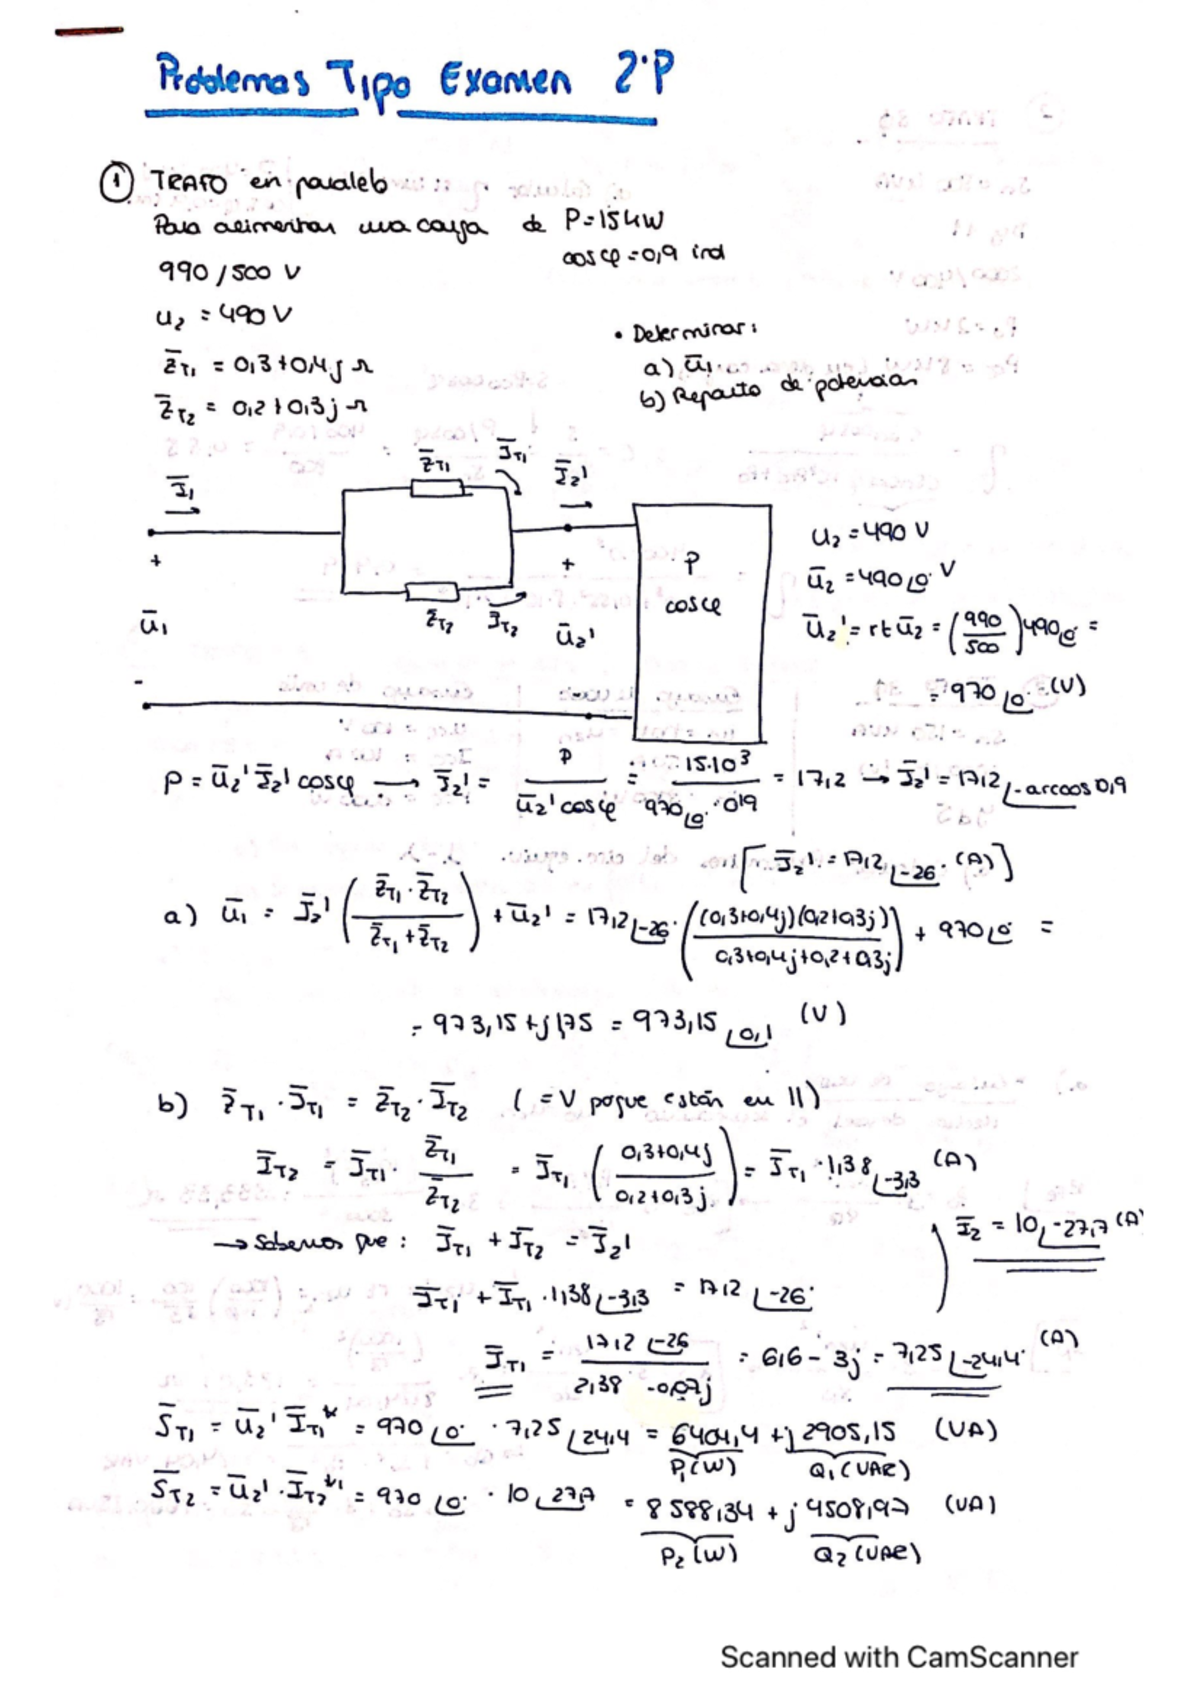 Problemas Tipo Examen 2ºP
① TRAFO en paralelo
Para alimentar una carga de P=15kW
cosφ=0,9 ind
990/500 V
u₂ = 490 V
Z̄T1 = 0,3+0,4j Ω
Z̄T2 = 0,2+0,3j Ω
• Determinar:
a) Ū₁
b) Reparto de potencias
Ī₁
Z̄T1
ĪT1
Ī₂'
+
Ū₁
-
Z̄T2
ĪT2
+
Ū₂'
P
cosφ
U₂ = 490 V
Ū₂ = 490∠0° V
Ū₂' = rt Ū₂ = (990/500) 490∠0° =
= 970∠0° (V)
P = Ū₂' Ī₂' cosφ → Ī₂' = P / (Ū₂' cosφ) = 15·10³ / (970∠0° · 0'9) = 17,2 → Ī₂' = 17,2∠-arccos 0,9
[Ī₂' = 17,2∠-26° (A)]
a) Ū₁ = Ī₂' (Z̄T1 · Z̄T2 / (Z̄T1 + Z̄T2)) + Ū₂' = 17,2∠-26° ((0,3+0,4j)(0,2+0,3j) / (0,3+0,4j+0,2+0,3j)) + 970∠0° =
= 973,15 + j1,75 = 973,15∠0,1 (V)
b) Z̄T1 · ĪT1 = Z̄T2 · ĪT2 (=V poque están en 11)
ĪT2 = ĪT1 · Z̄T1 / Z̄T2 = ĪT1 (0,3+0,4j / 0,2+0,3j) = ĪT1 · 1,38∠-3,3 (A)
→ Sabemos que: ĪT1 + ĪT2 = Ī₂'
Ī₂ = 10∠-27,7 (A)
ĪT1 + ĪT1 · 1,38∠-3,3 = 17,2∠-26°
ĪT1 = 17,2∠-26 / (2,38 - 0,07j) = 6,6 - 3j = 7,25∠-24,4° (A)
S̄T1 = Ū₂' ĪT1* = 970∠0° · 7,25∠24,4 = 6404,4 + j 2905,15 (VA)
P₁(W) Q₁(VAR)
S̄T2 = Ū₂' · ĪT2*' = 970∠0° · 10∠27,7 = 8588,34 + j 4508,97 (VA)
P₂(W) Q₂(VAR)
Scanned with CamScanner